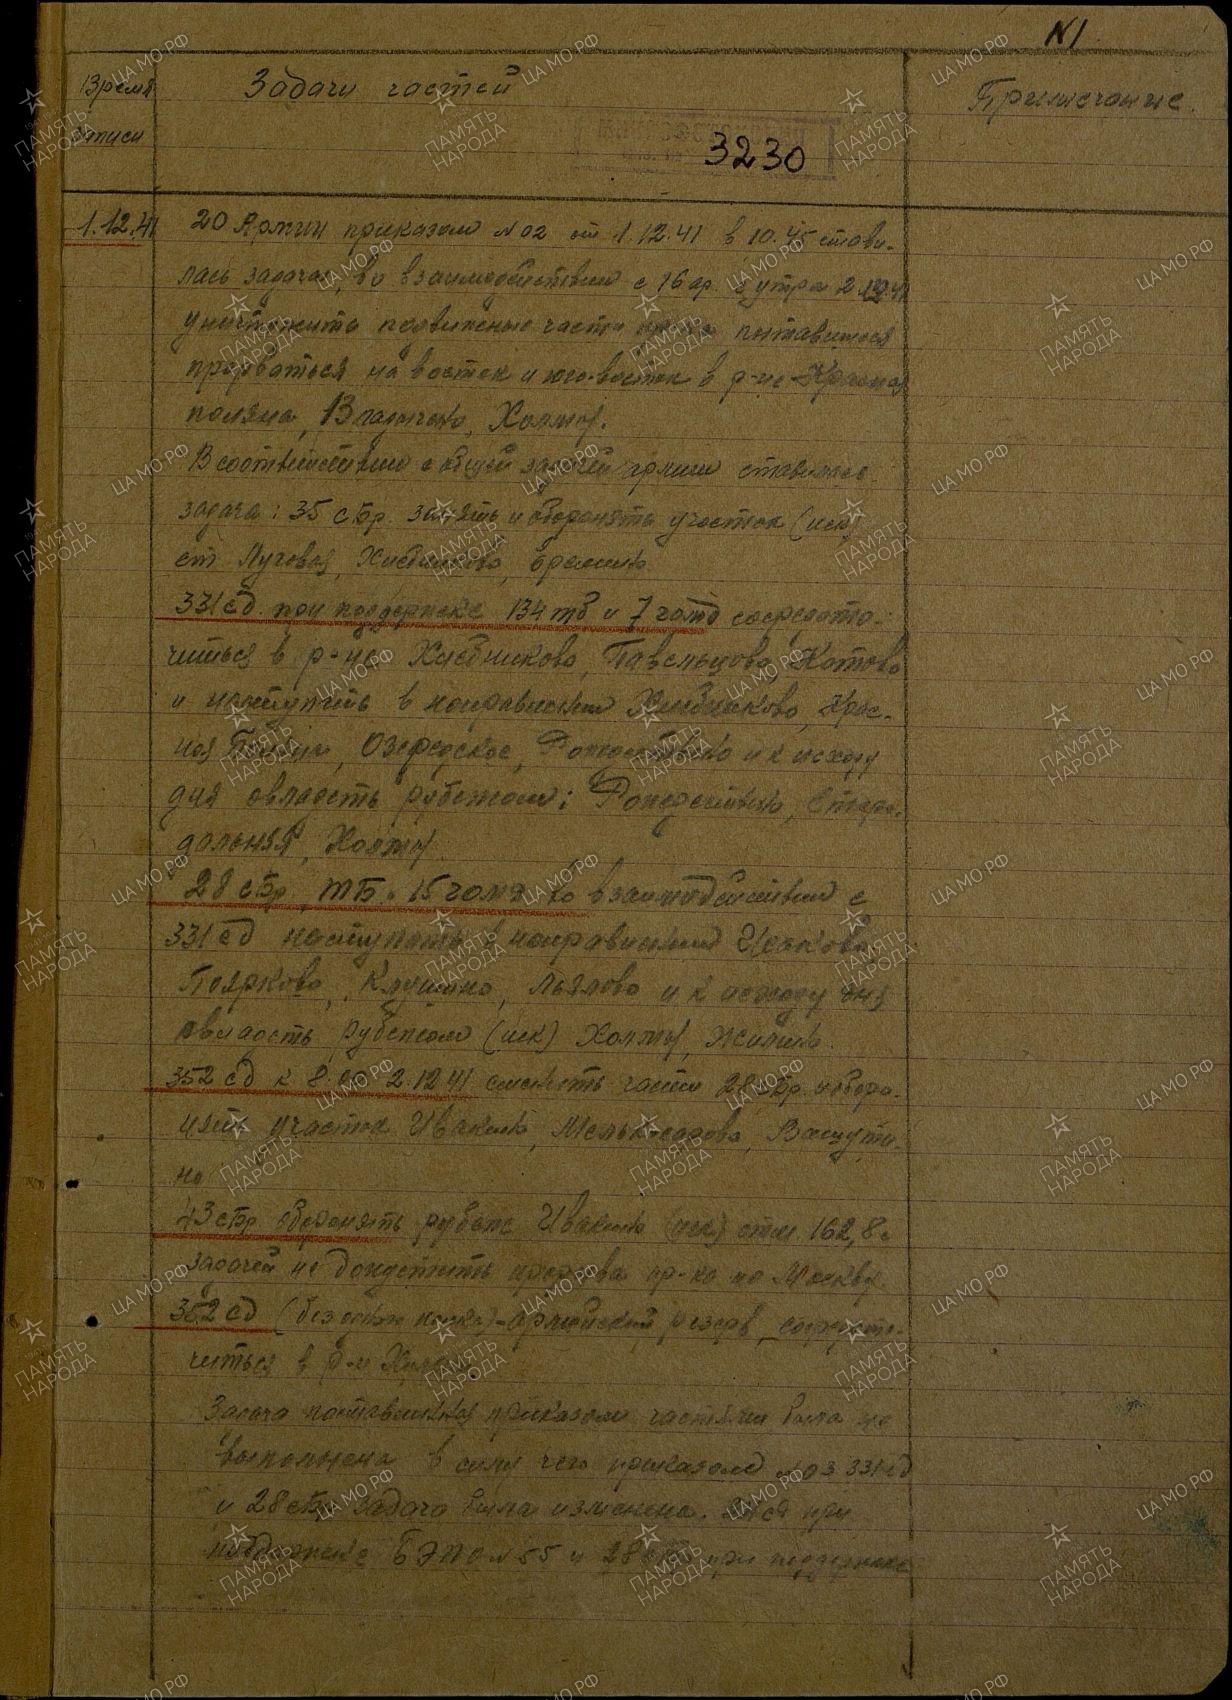 N1
Время записи
Задачи частей
Примечание.
3230
1.12.41
20 Армии приказом №02 от 1.12.41 в 10.45 стави-
лась задача, во взаимодействии с 16 ар. с утра 2.12.41
уничтожить подвижные части пр-ка пытавшиеся
прорваться на восток и юго-восток в р-не Красная
поляна, Владычено, Холмы.
В соответствии с общей задачей армии ставилась
задача: 35 сбр. занять и оборонять участок (иск)
ст Луговая, Хлебниково, Еремино
331 сд. при поддержке 134 тб и 7 гомд сосредото-
читься в р-не Хлебниково, Павельцово, Котово
и наступать в направлении Хлебниково, Крас-
ная Поляна, Озерецкое, Рождествено и к исходу
дня овладеть рубежом: Рождествено,
Холмы
28 сбр, тб и 15 гомд во взаимодействии с
331 сд наступать в направлении Исаково,
Поярково, Клушино, Льялово и к исходу дня
овладеть рубежом (иск) Холмы, Жилино.
352 сд к 8.00 2.12.41 сменить части 28 сбр. и оборо-
нять участок Ивакино, Мелькисарово, Вашути-
но
43 сбр оборонять рубеж Ивакино (иск) отм. 162,8 с
задачей не допустить прорыва пр-ка на Москву.
352 сд (без одного полка) - армейский резерв, сосредото-
читься в р-не Химки
Задача поставленная приказом частями была не
выполнена в силу чего приказом №03 331 сд
и 28 сбр задача была изменена. 331 сд при
поддержке БЭПО №55 и 28 сбр при поддержке
ПАМЯТЬ НАРОДА
ЦА МО РФ